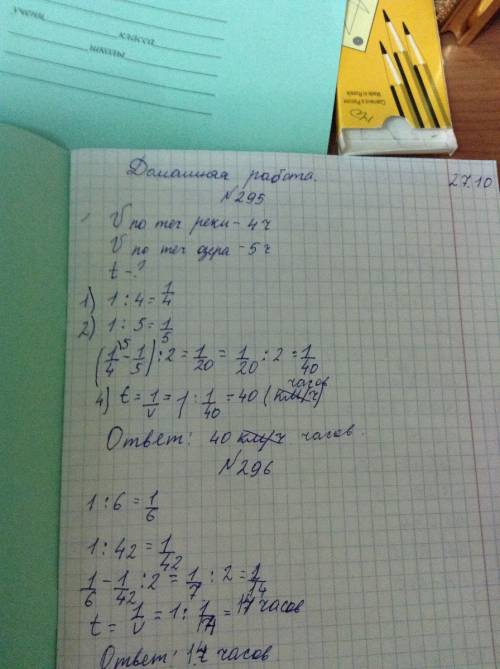 учени
класса
школы
Сделано в России
Made in Russia
Домашняя работа.
27.10
№295
V по теч реки - 4 ч
V по теч озера - 5 ч
t - ?
1) 1 : 4 = 1/4
2) 1 : 5 = 1/5
(1/4 - 1/5) : 2 = 1/20 = 1/20 : 2 = 1/40
4) t = 1/v = 1 : 1/40 = 40 (км/ч) часов
Ответ: 40 км/ч часов.
№296
1 : 6 = 1/6
1 : 42 = 1/42
1/6 - 1/42 : 2 = 1/7 : 2 = 1/14
t = 1/v = 1 : 1/14 = 14 часов
Ответ: 14 часов